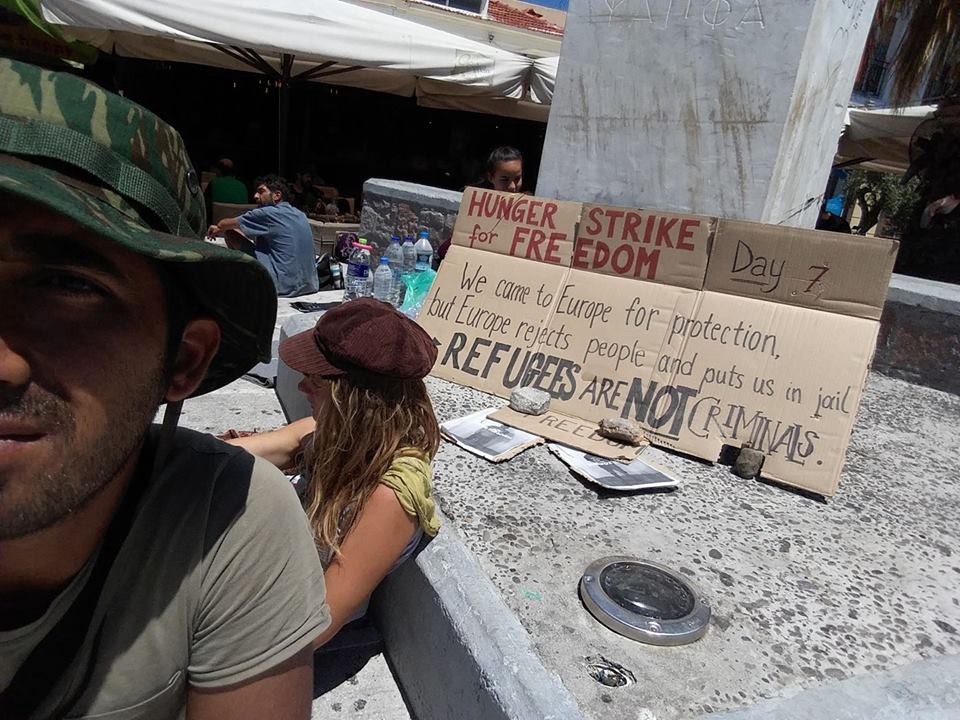 ΣΑΠΦΑ
HUNGER STRIKE
for FREEDOM
Day 7
We came to Europe for protection,
but Europe rejects people and puts us in jail
REFUGEES ARE NOT CRIMINALS.